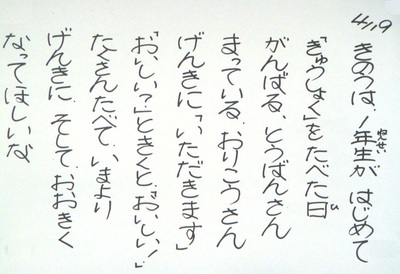 4/19
きのうは、1年生が はじめて
ねんせい
「きゅうしょく」をたべた日
ひ
がんばる、とうばんさん
まっている、おりこうさん
げんきに「いただきます」
「おいしい?」ときくと、「おいしい!」
たくさんたべて、いまより
げんきに、そして、おおきく
なってほしいな